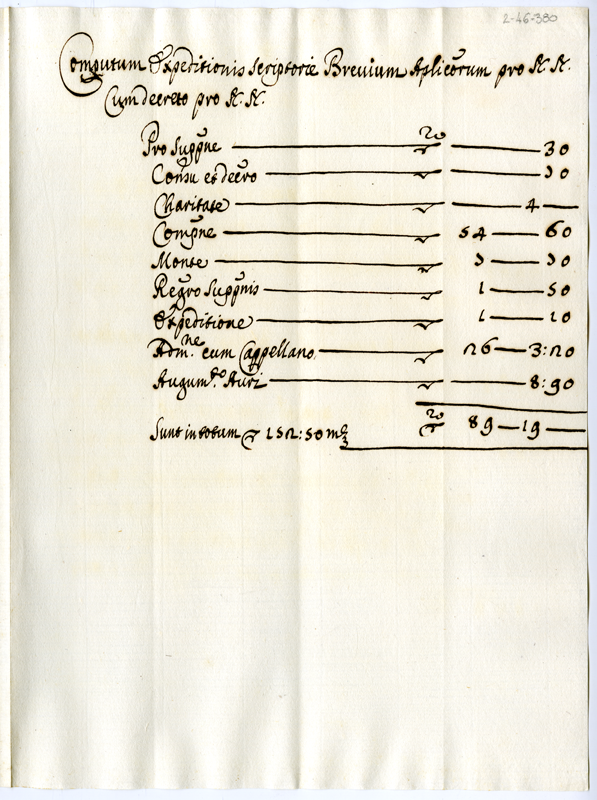 2-46-380
Computum Expeditionis Scriptorie Brevium Aplicorum pro N. N.
Cum decreto pro N. N.
Pro Suppne 20 30
Consu et decro 30
Charitate 4
Compne 54 60
Monte 3 30
Regro Suppnis 1 50
Expeditione 1 20
Adm.ne cum Cappellano 26 3:20
Augum.to Auri 8:90
Sunt in totum 152:50 20 89 19